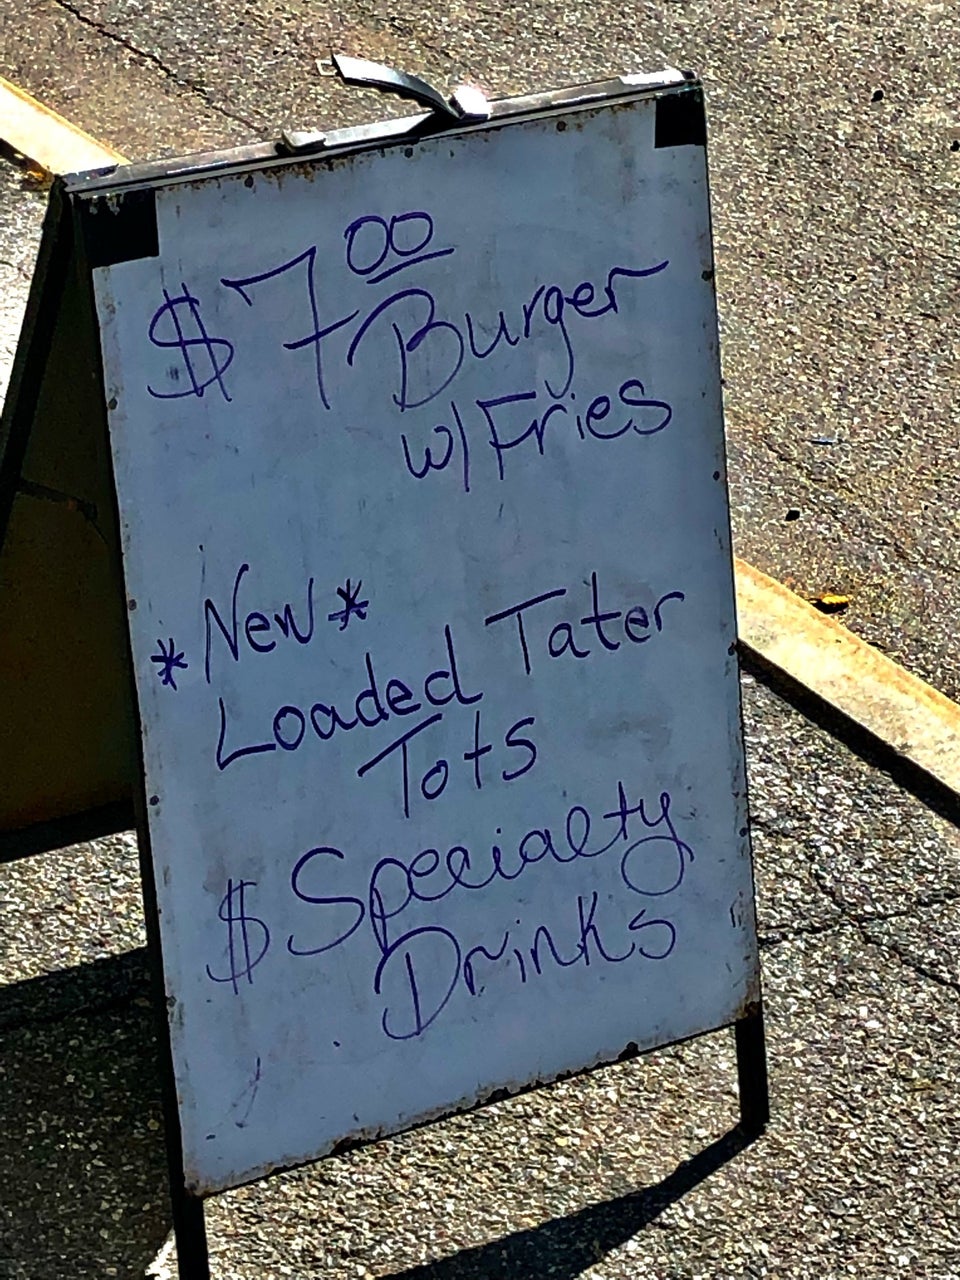 $7.00 Burger
w/ Fries
*New*
Loaded Tater
Tots
$ Specialty
Drinks